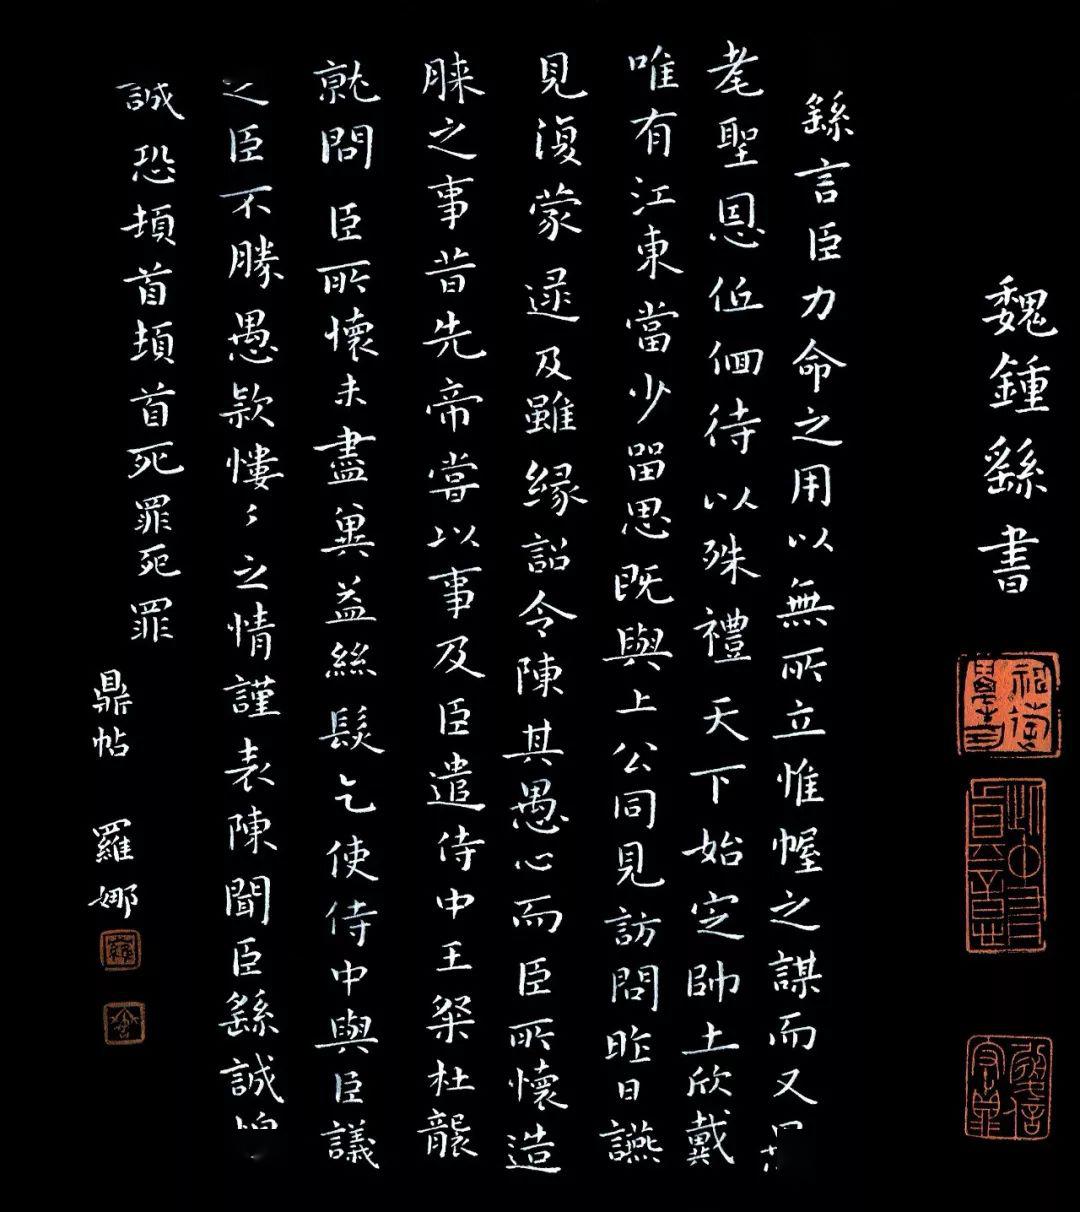 魏鍾繇書
繇言臣力命之用以無所立惟幄之謀而又
耄聖恩低佪待以殊禮天下始定帥土欣戴
唯有江東當少留思既與上公同見訪問昨日讌
見復蒙逮及雖緣詔令陳其愚心而臣所懷造
膝之事昔先帝嘗以事及臣遣侍中王粲杜襲
就問臣所懷未盡冀益絲髮乞使侍中與臣議
之臣不勝愚款慺〻之情謹表陳聞臣繇誠
誠恐頓首頓首死罪死罪
鼎帖 羅娜